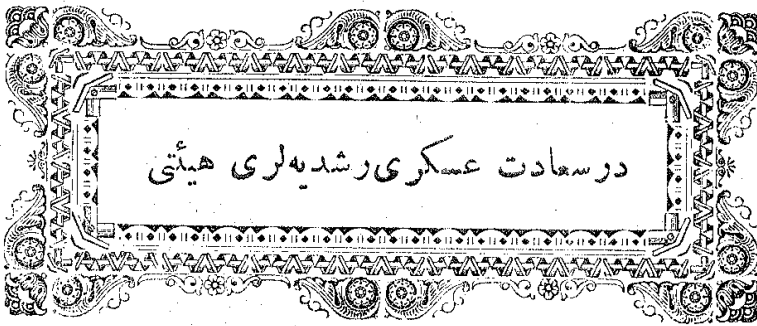 درسعادت عسکری رشدیه‌لری هیئتی